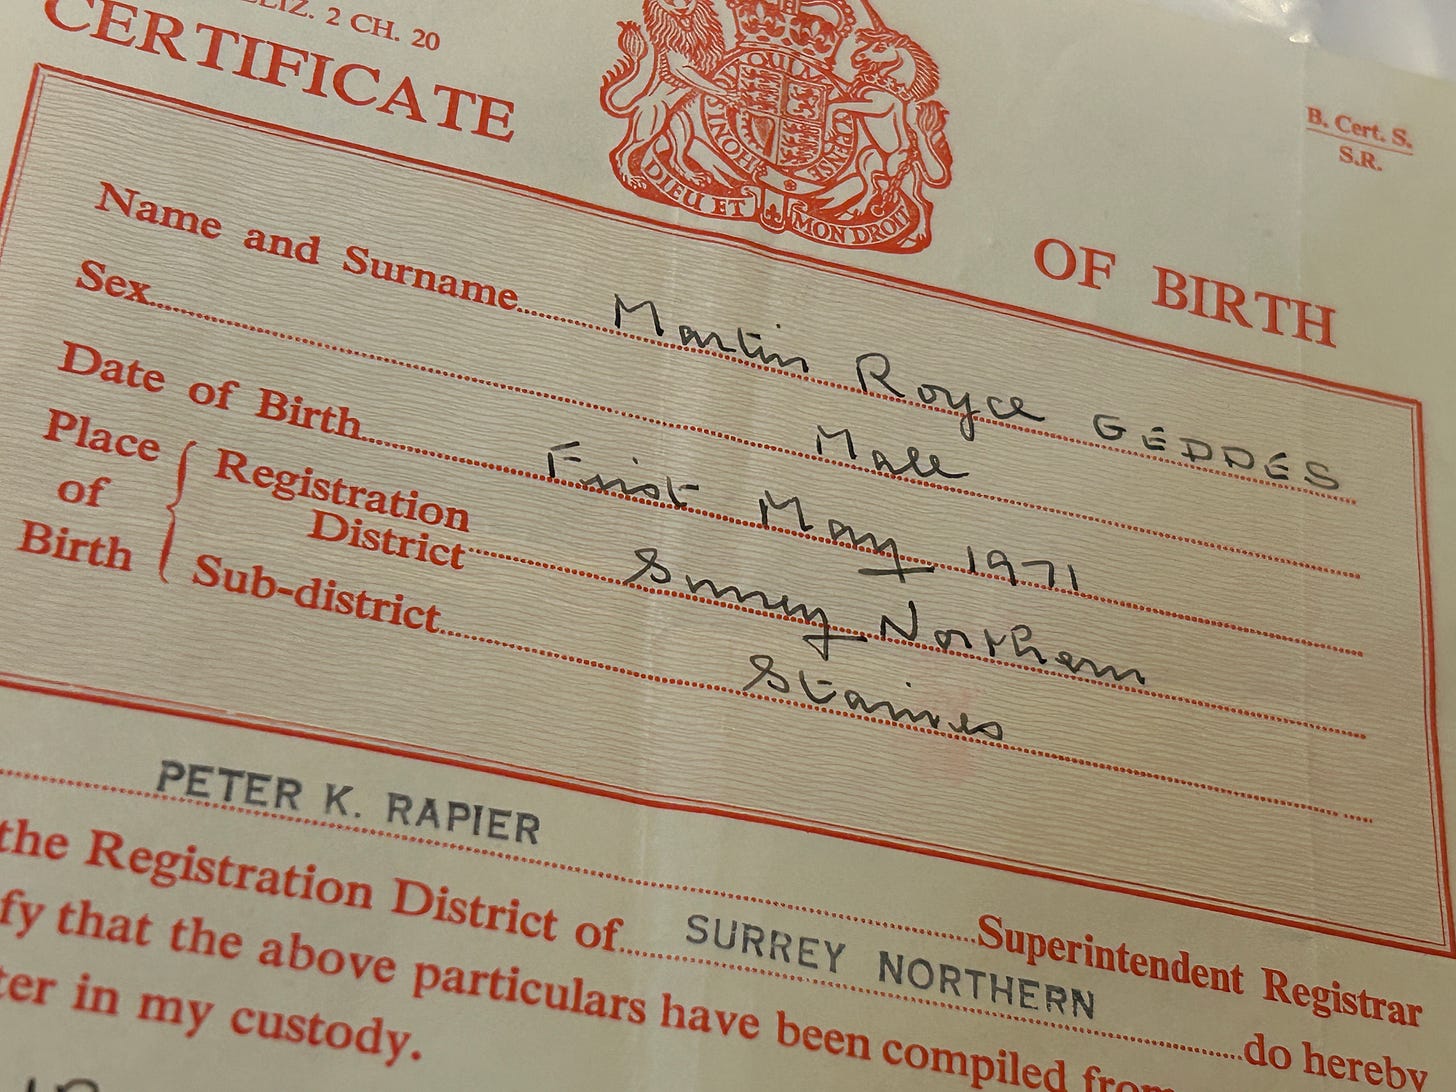 ELIZ. 2 CH. 20
CERTIFICATE OF BIRTH
B. Cert. S.
S.R.
DIEU ET MON DROIT
Name and Surname Martin Royce GEDDES
Sex Male
Date of Birth First May 1971
Place of Birth
Registration District Surrey Northern
Sub-district Staines
PETER K. RAPIER Superintendent Registrar
the Registration District of SURREY NORTHERN do hereby
fy that the above particulars have been compiled from
ter in my custody.